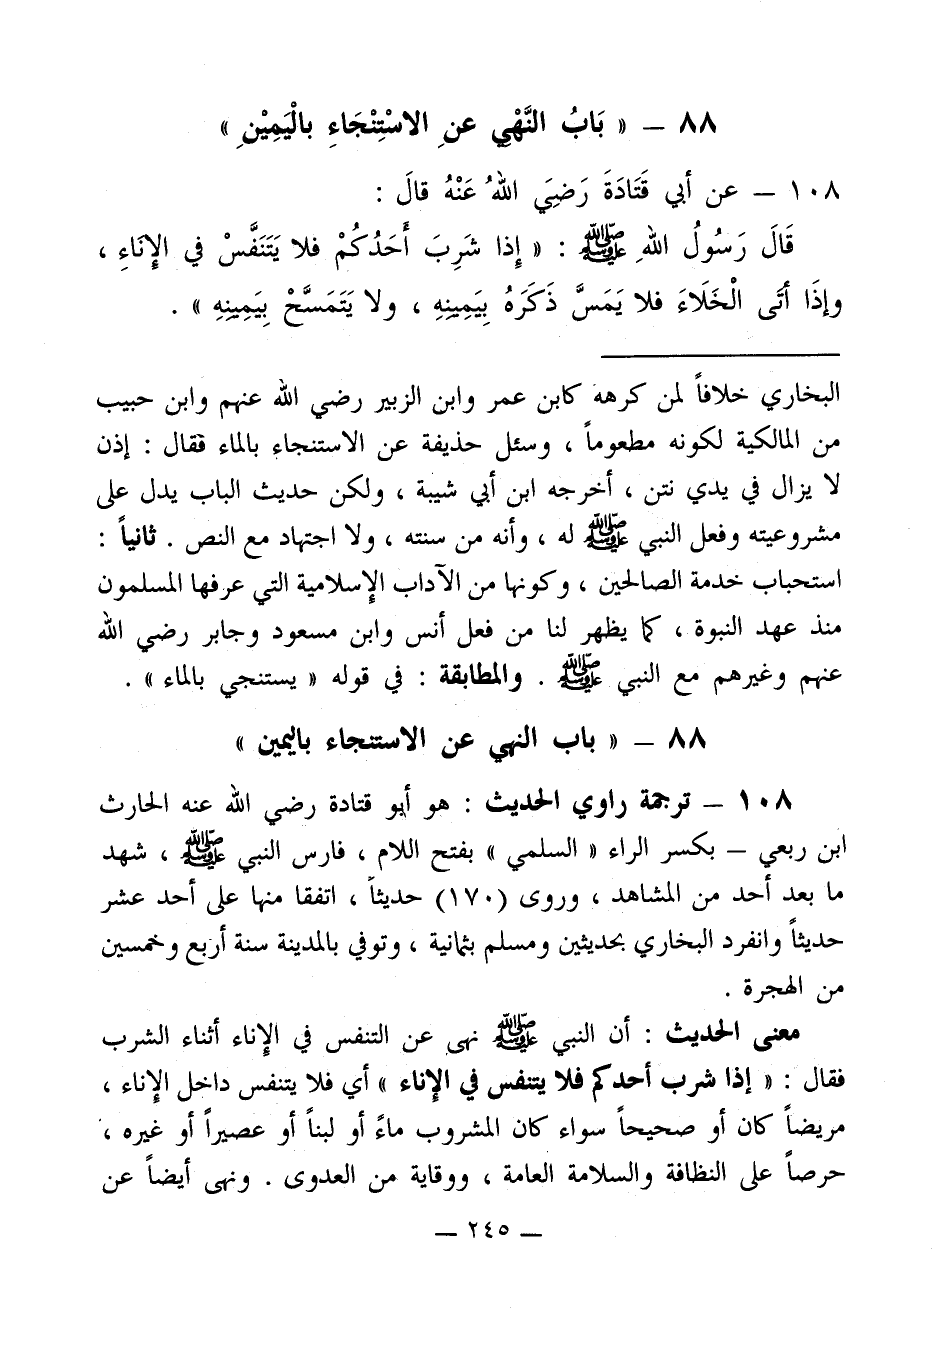 ٨٨ – « بَابُ النَّهْيِ عنِ الاسْتِنْجَاءِ بالْيَمِيْنِ »
١٠٨ – عن أبي قَتَادَةَ رَضِيَ اللهُ عَنْهُ قالَ :
قَالَ رَسُولُ اللهِ ﷺ : « إِذا شَرِبَ أَحَدُكُمْ فلا يَتَنَفَّسْ في الإِنَاءِ ،
وإذَا أتَى الْخَلَاءَ فلا يَمَسَّ ذَكَرَهُ بِيَمِينِهِ ، ولا يَتَمَسَّحْ بِيَمِينِهِ » .
البخاري خلافاً لمن كرهه كابن عمر وابن الزبير رضي الله عنهم وابن حبيب
من المالكية لكونه مطعوماً ، وسئل حذيفة عن الاستنجاء بالماء فقال : إذن
لا يزال في يدي نتن ، أخرجه ابن أبي شيبة ، ولكن حديث الباب يدل على
مشروعيته وفعل النبي ﷺ له ، وأنه من سنته ، ولا اجتهاد مع النص . ثانياً :
استحباب خدمة الصالحين ، وكونها من الآداب الإسلامية التي عرفها المسلمون
منذ عهد النبوة ، كما يظهر لنا من فعل أنس وابن مسعود وجابر رضي الله
عنهم وغيرهم مع النبي ﷺ . والمطابقة : في قوله « يستنجي بالماء » .
٨٨ – « باب النهي عن الاستنجاء باليمين »
١٠٨ – ترجمة راوي الحديث : هو أبو قتادة رضي الله عنه الحارث
ابن ربعي – بكسر الراء « السلمي » بفتح اللام ، فارس النبي ﷺ ، شهد
ما بعد أحد من المشاهد ، وروى (١٧٠) حديثاً ، اتفقا منها على أحد عشر
حديثاً وانفرد البخاري بحديثين ومسلم بثمانية ، وتوفي بالمدينة سنة أربع وخمسين
من الهجرة .
معنى الحديث : أن النبي ﷺ نهى عن التنفس في الإناء أثناء الشرب
فقال : « إذا شرب أحدكم فلا يتنفس في الإناء » أي فلا يتنفس داخل الإناء ،
مريضاً كان أو صحيحاً سواء كان المشروب ماءً أو لبناً أو عصيراً أو غيره ،
حرصاً على النظافة والسلامة العامة ، ووقاية من العدوى . ونهى أيضاً عن
– ٢٤٥ –